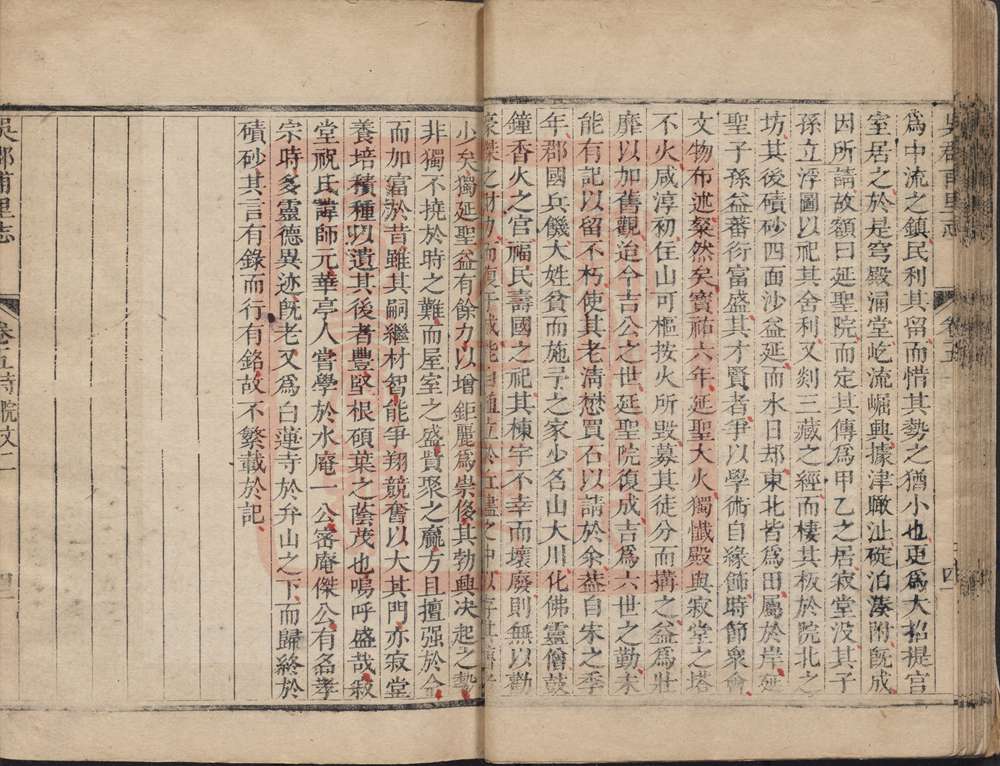 吳郡甫里志 卷五 四
為中流之鎮民利其留而惜其勢之猶小也更為大招提官
室居之於是穹殿涌堂屹流崛興據津瞰沚碇泊湊附旣成
因所請故額曰延聖院而定其傳為甲乙之居寂堂没其子
孫立浮圖以祀其舍利又刻三藏之經而棲其板於院北之
坊其後磧砂四面沙益延而水日却東北皆為田屬於岸延
聖子孫益蕃衍富盛其才賢者爭以學術自緣飾時節衆會
文物布述粲然矣寳祐六年延聖大火獨懴殿與寂堂之塔
不火咸淳初住山可樞按火所毁募其徒分而搆之益為壯
靡以加舊觀迨今吉公之世延聖院復成吉為六世之勤未
能有記以留不朽使其老清懋買石以請於余葢自宋之季
年郡國兵儳大姓貧而施予之家少名山大川化佛靈僧鼓
鐘香火之官福民壽國之祀其棟宇不幸而壞廢則無以勸
豪傑之財力而復于成能自植立於
少矣獨延聖益有餘力以增鉅麗為崇侈其勃興決起之勢
非獨不撓於時之難而屋室之盛貲聚之羸方且擅强於今
而加富於昔雖其嗣繼材智能爭翔競奮以大其門亦寂堂
養培積種以遺其後者豐堅根碩葉之蔭茂也嗚呼盛哉寂
堂祝氏諱師元華亭人嘗學於水庵一公密庵傑公有名孝
宗時多靈德異迹旣老又為白蓮寺於弁山之下而歸終於
磧砂其言有錄而行有銘故不繁載於記
吳郡甫里志 卷五 寺院文二 四